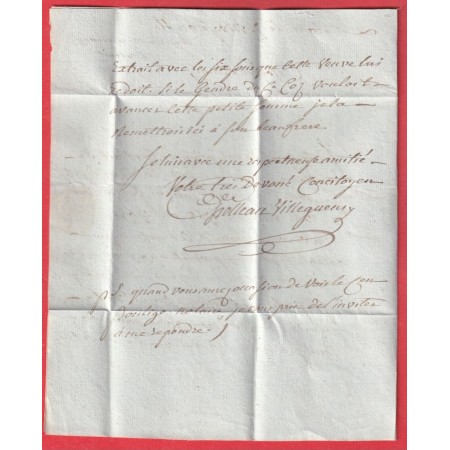 Extrait avec les six sous que cette veuve lui
redoit. Si le Gendre de Cn Coz voulait
avancer cette petite somme je la
remettrais ici à son beaufrere
Je suis avec une respectueuse amitié
Votre Très Devoué Concitoyen
Villequeney
quand vous aurez occasion de voir le Cen
notaire, je vous prie de l'inviter
à me repondre